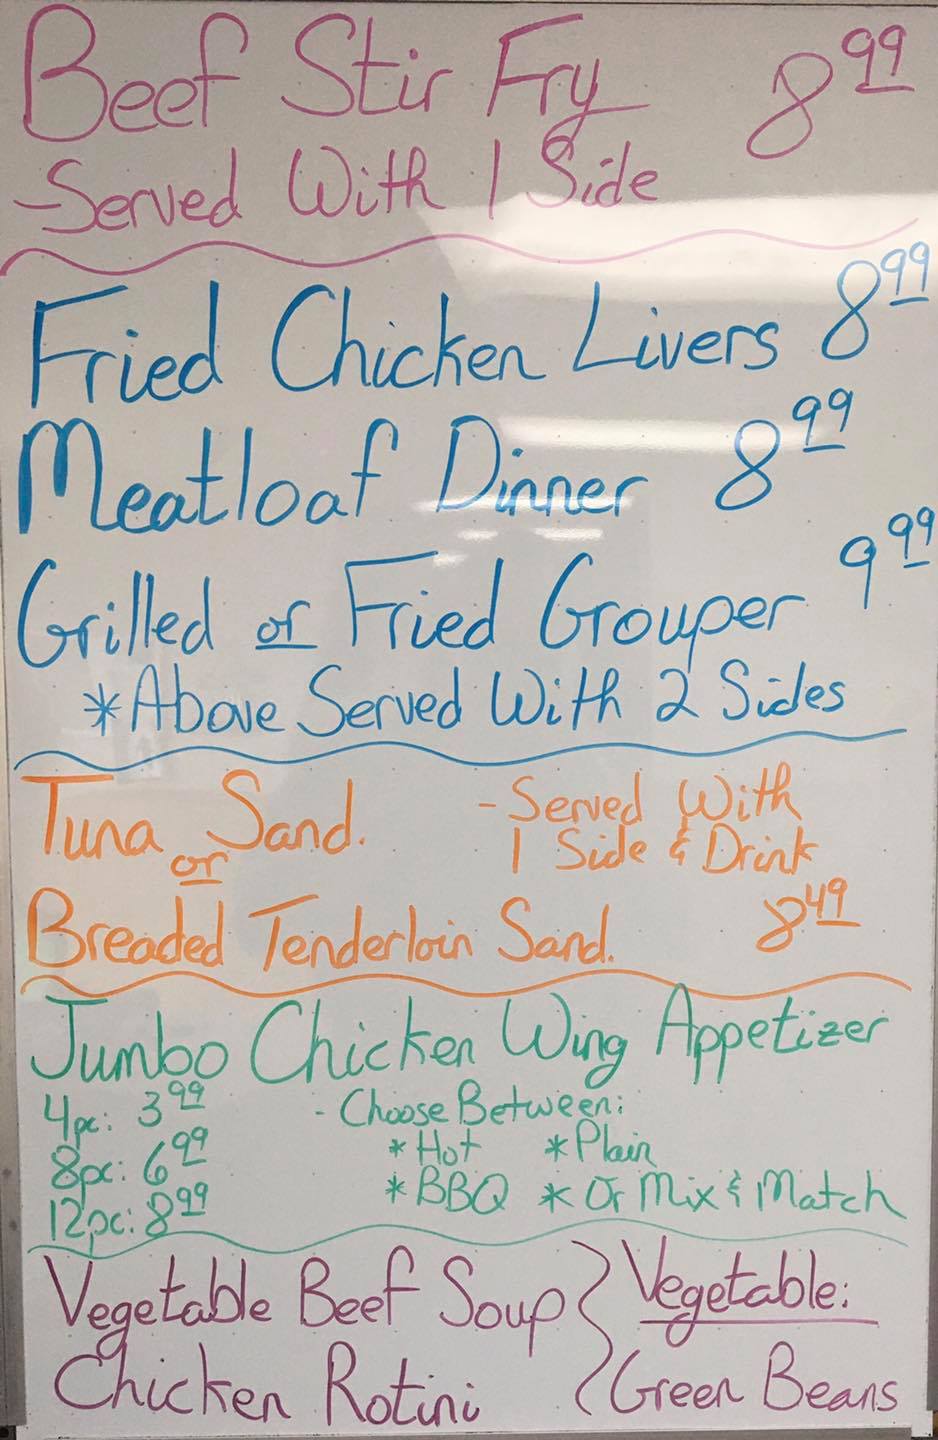 Beef Stir Fry 8.99
-Served With 1 Side
Fried Chicken Livers 8.99
Meatloaf Dinner 8.99
Grilled or Fried Grouper 9.99
*Above Served With 2 Sides
Tuna Sand.
or
Breaded Tenderloin Sand.
-Served With
1 Side & Drink
8.49
Jumbo Chicken Wing Appetizer
4pc: 3.99
8pc: 6.99
12pc: 8.99
- Choose Between:
*Hot *Plain
*BBQ *Or Mix & Match
Vegetable Beef Soup
Chicken Rotini
Vegetable:
Green Beans